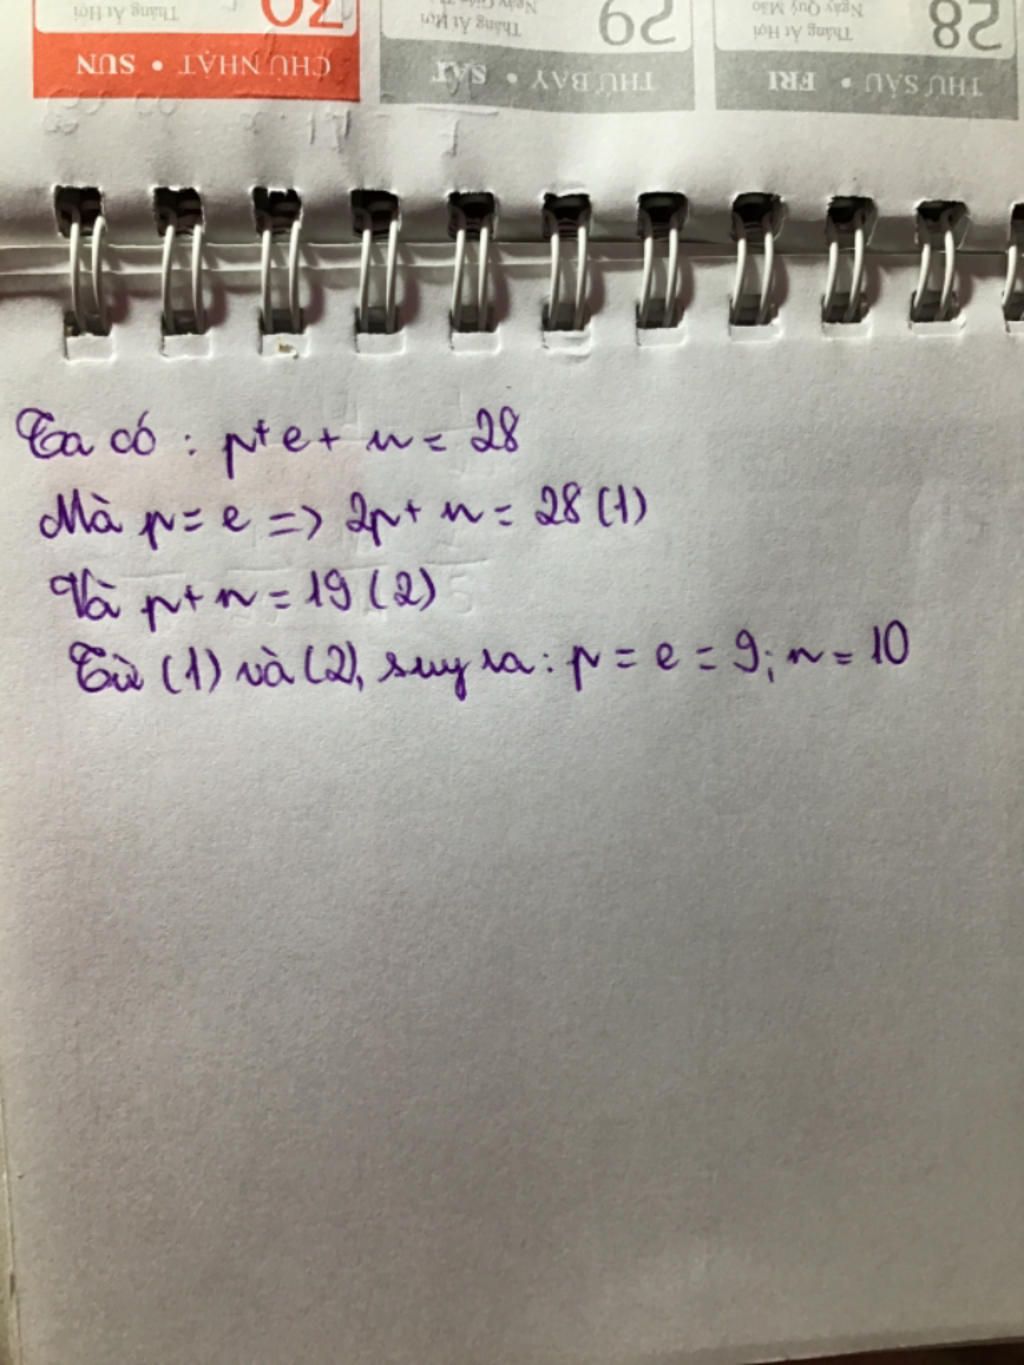 Tháng Ất Hợi
30
CHỦ NHẬT • SUN
Tháng Ất Hợi
29
THỨ BẢY • SAT
Ngày Quý Mão
Tháng Ất Hợi
28
THỨ SÁU • FRI
Ta có : p+e+ n = 28
Mà p = e => 2p+ n = 28 (1)
Và p+ n = 19 (2)
Từ (1) và (2), suy ra : p = e = 9; n = 10